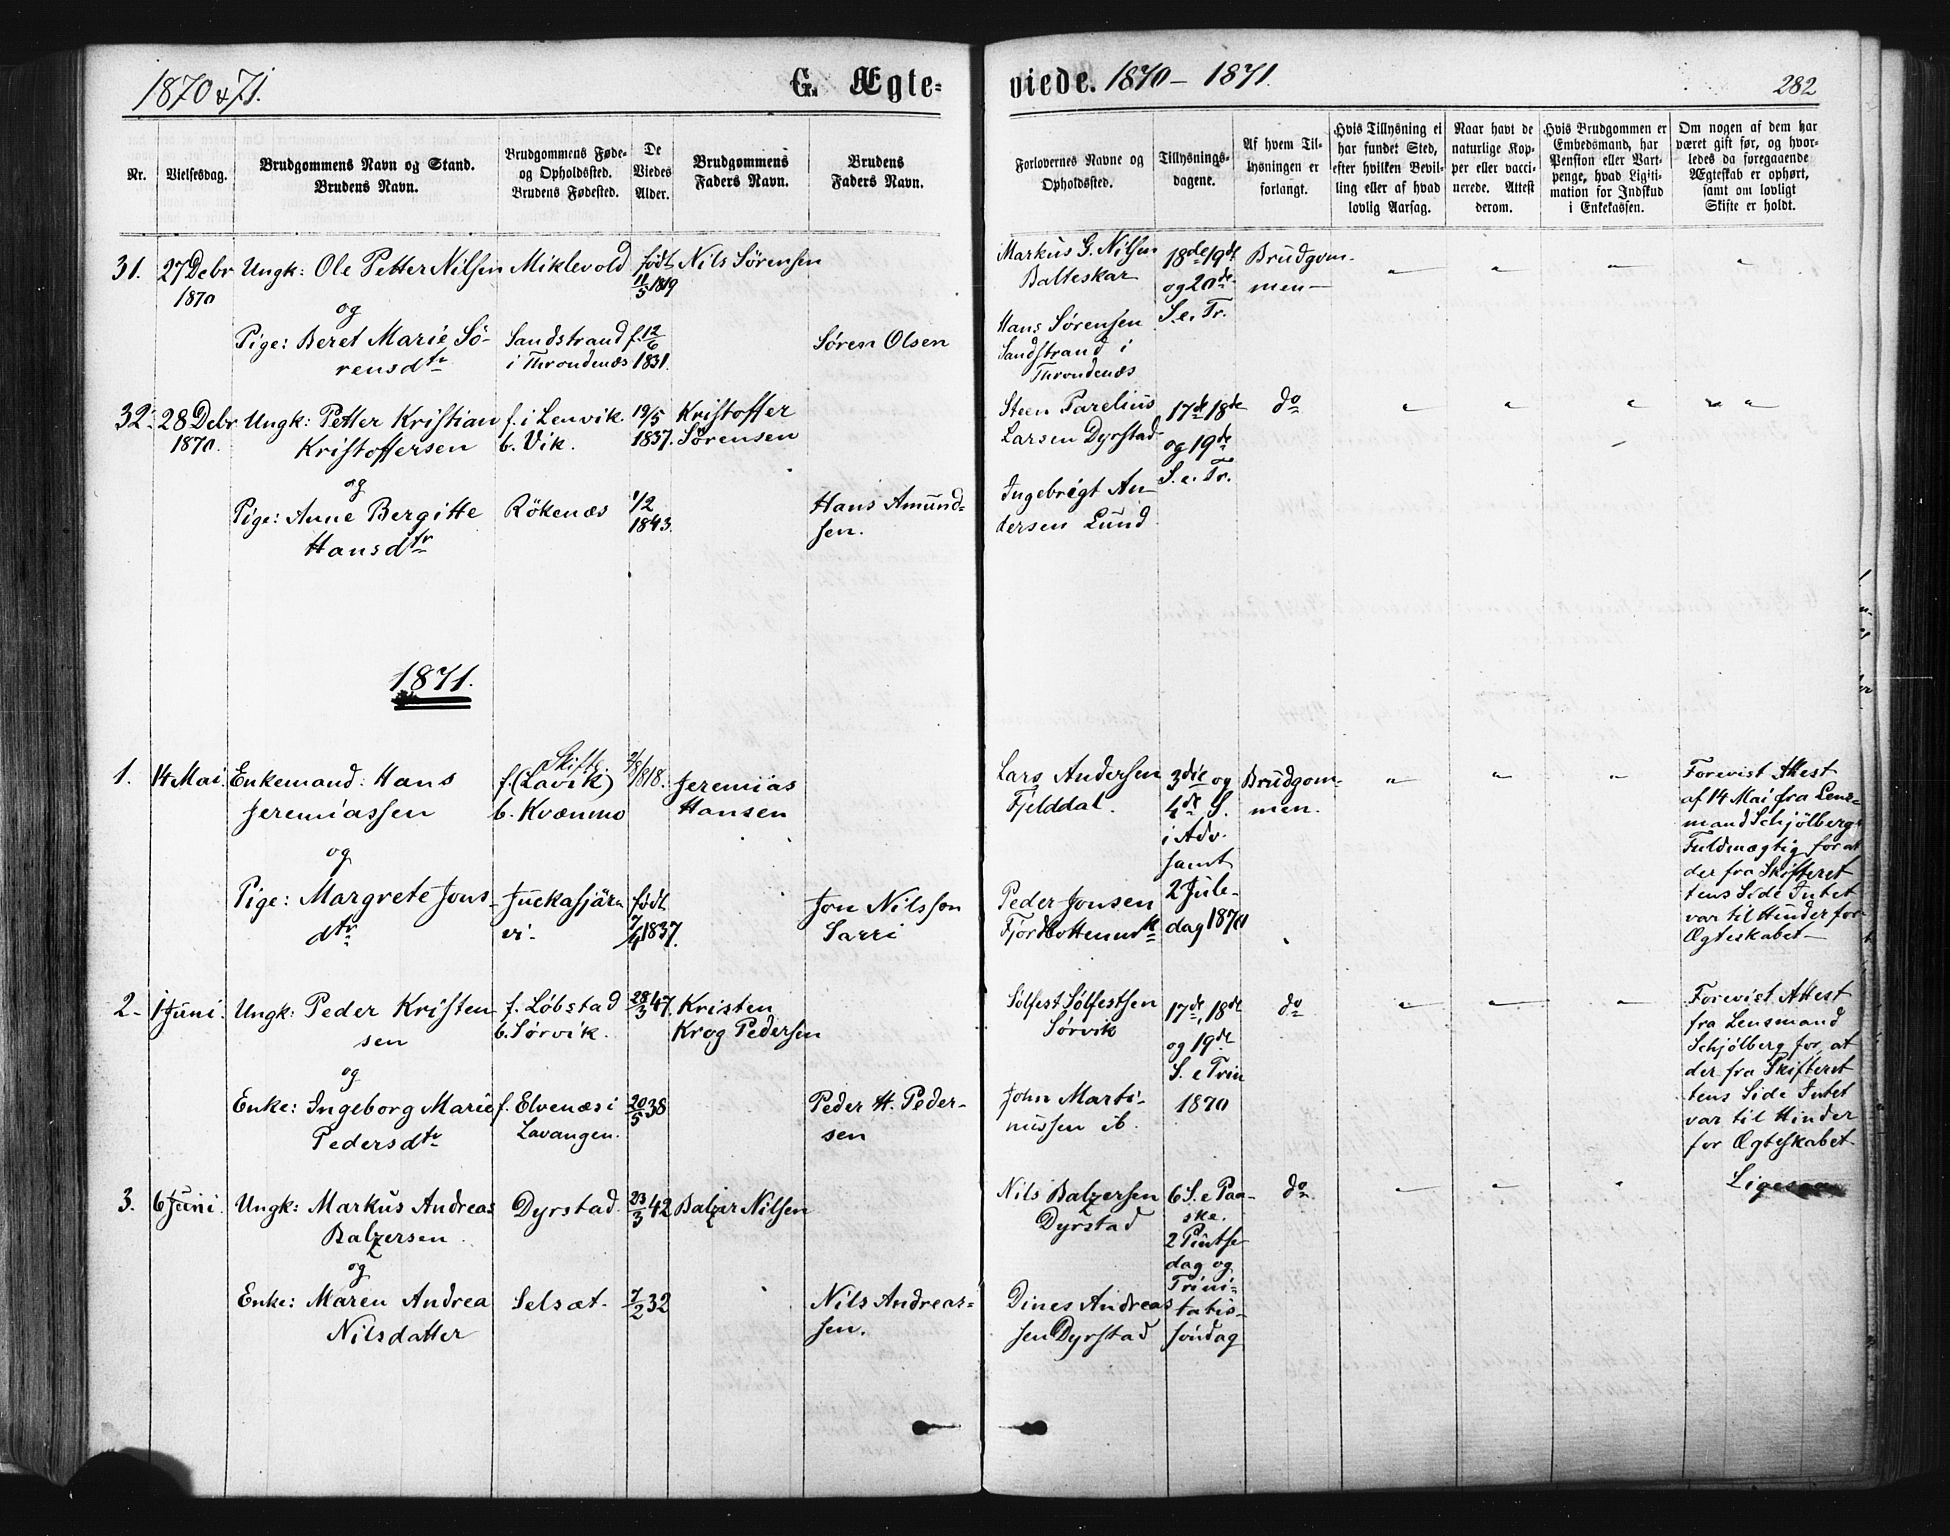 1870 & 71.
G. Ægte-
viede. 1870 – 1871.
282
Nr.
Vielsesdag.
Brudgommens Navn og Stand.
Brudens Navn.
Brudgommens Føde-
og Opholdssted.
Brudens Fødested.
De
Viedes
Alder.
Brudgommens
Faders Navn.
Brudens
Faders Navn.
Forlovernes Navne og
Opholdssted.
Tillysnings-
dagene.
Af hvem Til-
lysningen er
forlangt.
Hvis Tillysning ei
har fundet Sted,
efter hvilken Bevil-
ling eller af hvad
lovlig Aarsag.
Naar havt de
naturlige Kop-
per eller vacci-
nerede. Attest
derom.
Hvis Brudgommen er
Embedsmand, har
Pension eller Vart-
penge, hvad Ligiti-
mation for Indskud
i Enkekassen.
Om nogen af dem har
været gift før, og hvor-
ledes da foregaaende
Ægteskab er ophørt,
samt om lovligt
Skifte er holdt.
31.
27 Debr
1870
Ungk: Ole Petter Nilsen
og
Pige: Beret Marie Sö-
rensdtr
Miklevold
Sandstrand
i Throndenæs
født
11/5 1819
f. 12/6
1831.
Nils Sørensen
Søren Olsen
Markus G. Nilsen
Balteskar
Hans Sørensen
Sandstrand i
Throndenæs
18de 19de
og 20de
S. e. Tr.
Brudgom-
men –
32.
28 Debr
1870.
Ungk: Petter Kristian
Kristoffersen
og
Pige: Anne Bergitte
Hansdtr
f. i Lenvik.
b. Vik.
Rökenæs
19/5
1837.
1/2
1843.
Kristoffer
Sørensen
Hans Amund-
sen.
Steen Parelius
Larsen Dyrstad
Ingebrigt An-
dersen Lund
17de 18de
og 19de
S. e. Tr.
do
1871.
1.
14 Mai.
Enkemand: Hans
Jeremiassen
og
Pige: Margrete Jons-
dtr
Skifte
f. (Lavik)
b. Kvænmo
Juckasjär-
vi.
2/8 1818.
født
7/4 1837.
Jeremias
Hansen
Jon Nilsson
Sarri
Lars Andersen
Fjelddal.
Peder Jonsen
3die og
4de S.
i Adv.
samt
2 Jule-
dag 1870
Brudgom-
men.
Forevist Attest
af 14 Mai fra Lens-
mand Schjølbergs
Fuldmægtig for at
der fra Skifteret
tens Side Intet
var til Hinder for
Ægteskabet –
2 –
1 Juni.
Ungk: Peder Kristen
sen
og
Enke: Ingeborg Marie
Pedersdtr
f. Løbstad
b. Sørvik.
f. Elvenæs i
Lavangen.
28/3 47.
20/5 38
Kristen
Krog Pedersen
Peder H. Peder-
sen
Sølfest Sølfestsen
Sørvik
John Marti-
nussen ib.
17de, 18de
og 19de
S. e Trin
1870
do
Forevist Attest
fra Lensmand
Schjølberg for, at
der fra Skifteret
tens Side Intet
var til Hinder
for Ægteskabet
3.
6 Juni.
Ungk: Markus Andreas
Balzersen
og
Enke: Maren Andrea
Nilsdatter
Dyrstad.
Selsæt.
23/3 42
7/2 32
Balzer Nilsen
Nils Andreas-
sen.
Nils Balzersen
Dyrstad
Dines Andreas
sen Dyrstad
6 S. e Paa-
ske.
2 Pintse
dag og
Trini-
tatis-
søndag
do